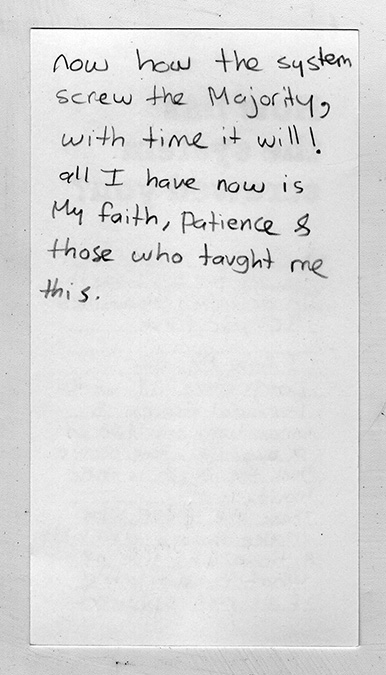 now how the system
screw the Majority,
with time it will!
all I have now is
My faith, Patience &
those who taught me
this.